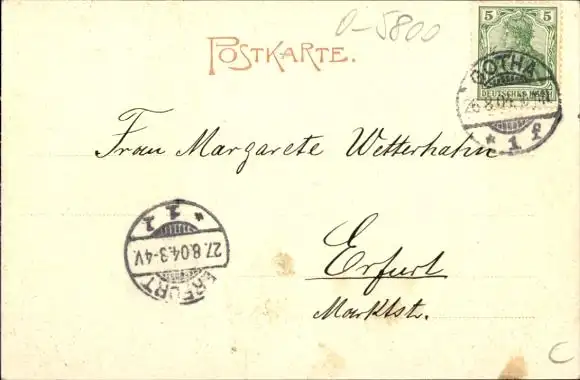 O-5800
POSTKARTE.
5 5
DEUTSCHES REICH
GOTHA
26.8.04.
* 1 f
Frau Margarete Wetterhahn
1
* 1
27.8.04.3-4V.
ERFURT
Erfurt
Marktstr.
C